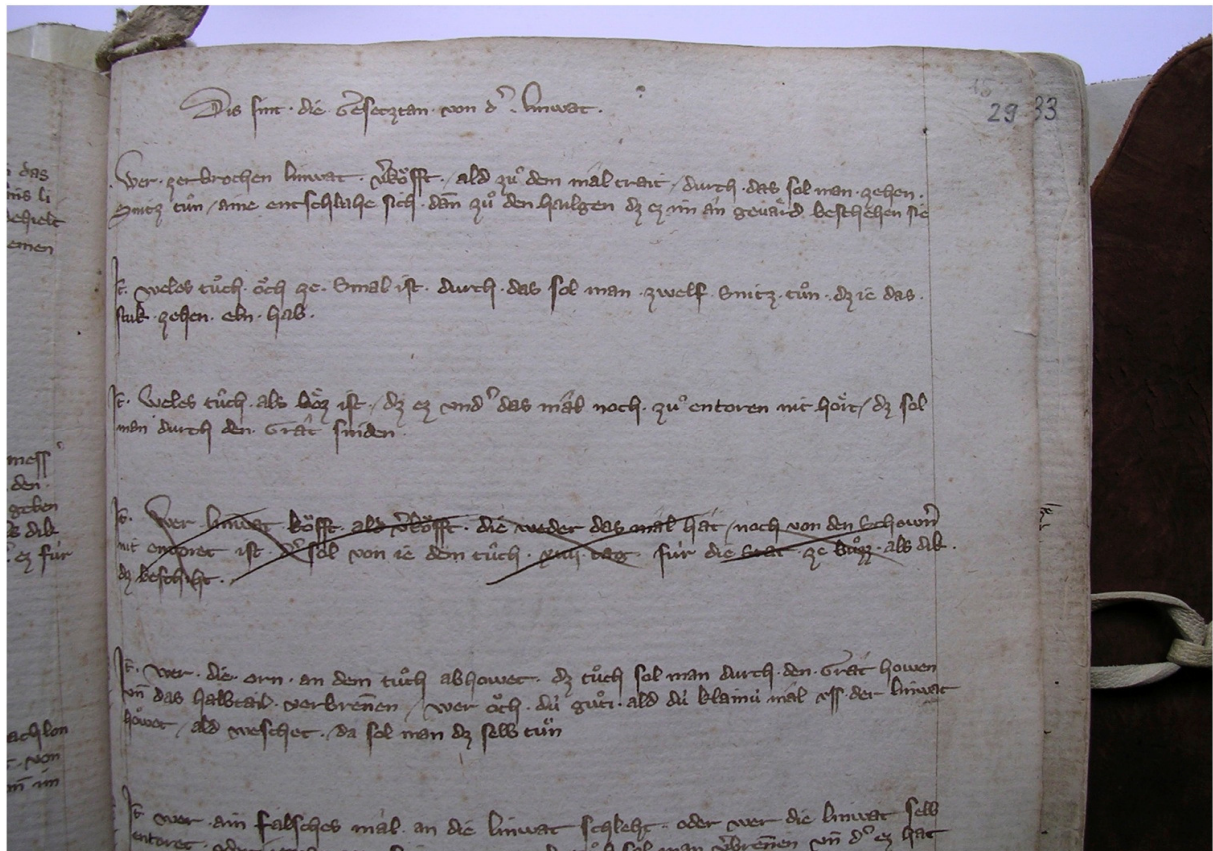 Dis sint die Gesetztan von d' linwat.
29 33
Wer zerbrochen linwat v'köfft, ald zů dem mal trait, durch das sol man zehen
Snitz tůn, ane entschlahe sich dañ zů den hailgen dz ez im an geuärd beschehen sie
It. weles tůch öch ze Smal ist, durch das sol man zwelf Snitz tůn, dz ie das
stuk zehen eln hab.
It. Weles tůch als bỏz ist, dz ez vnd' das mâl noch zů entoren nit hört, dz sol
man durch den Grât sniden.
It. Wer linwat köfft ald v'köfft die weder das mâl hat noch von den Schowern
nit entoret ist, der sol von ie dem tůch xiiij tag für die Stat ze bůzz als dik
dz beschiht.
It. wer die orn an dem tůch abhowet, dz tůch sol man durch den Grât howen
vñ das halbtail verbreñen, wer öch dü gůti ald dü klainü mal vss der linwat
höwet, ald weschet, da sol man dz selb tůn
It. wer ain falsches mâl an die linwat schleht, oder wer die linwat selb
entoret sol man v'breñen vñ d' ez hat
das
emen
mess
den
geben
ez für
von
im